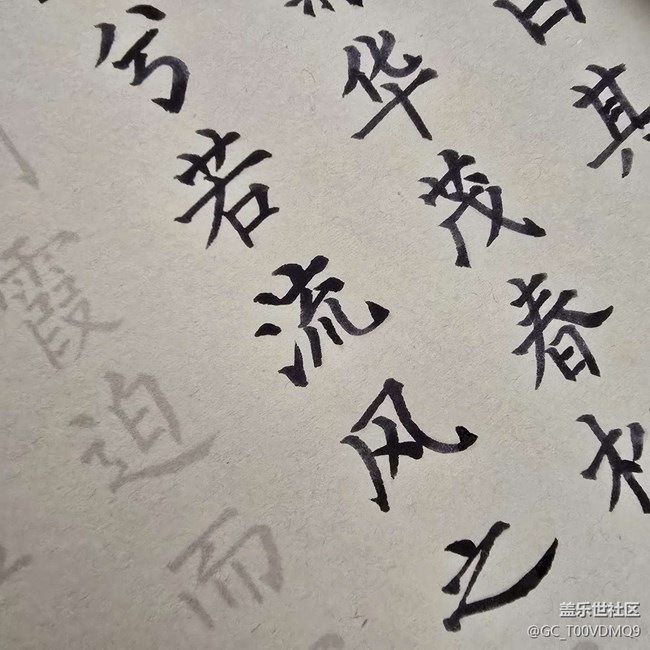 曰其
华茂春
兮若流风之
霞迫而
盖乐世社区
@GC_T00VDMQ9